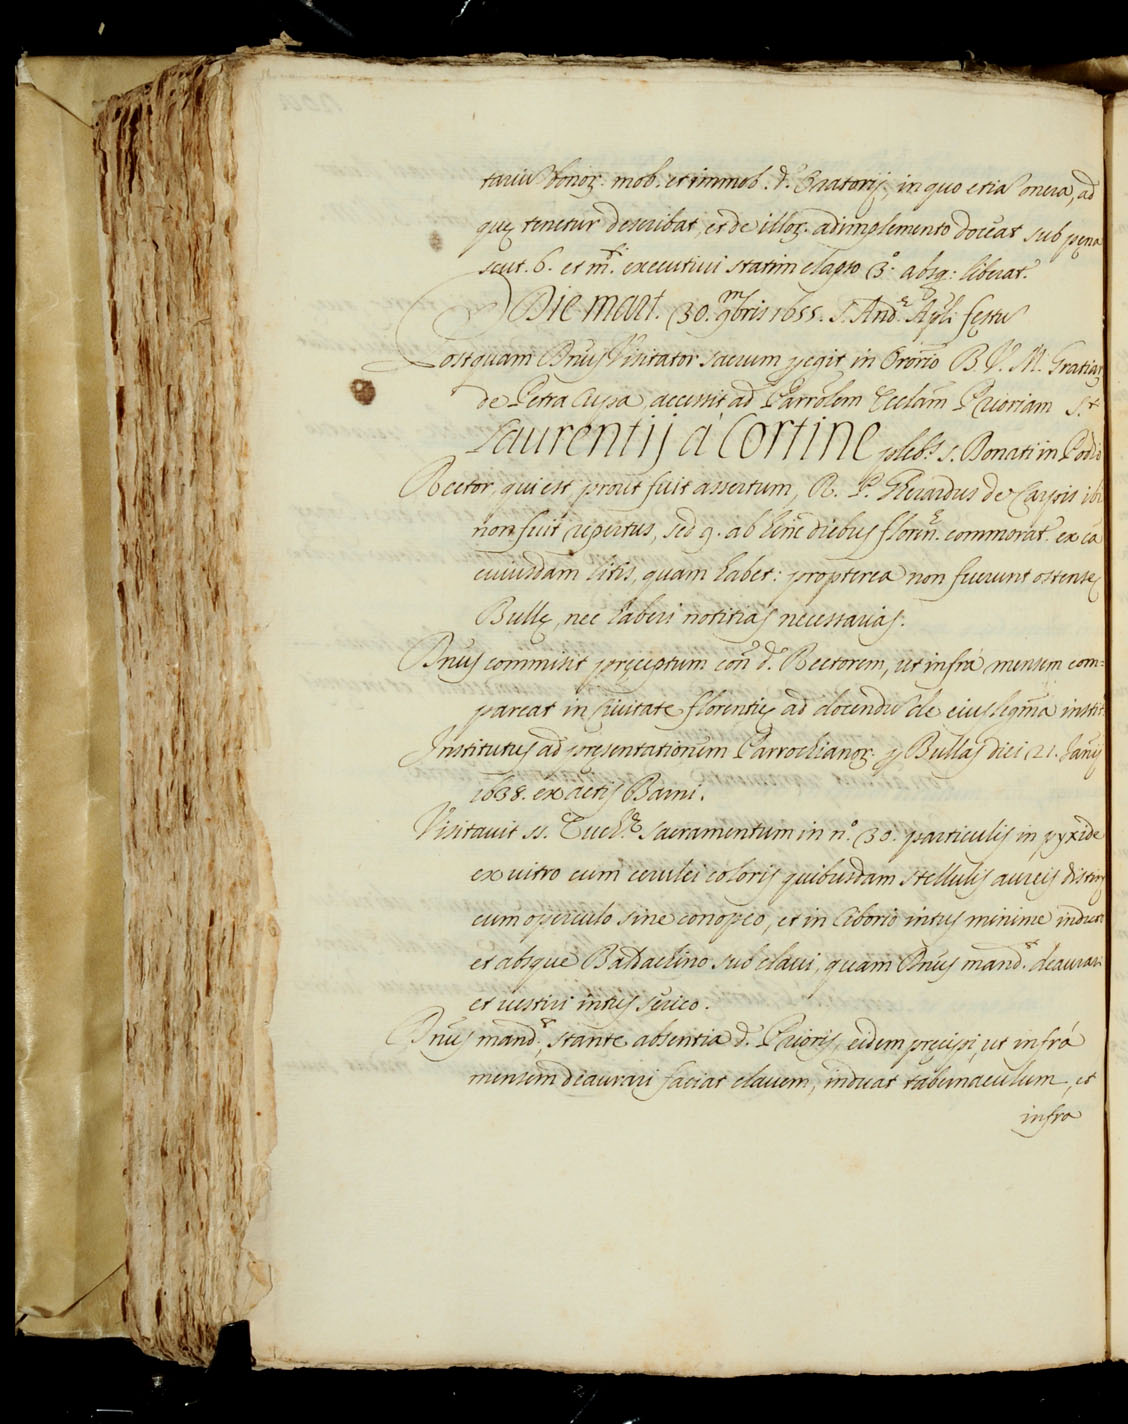 tariu bonoꝝ. mob. et immob. d.ⁱ Oratorij, in quo etia onera, ad
quę tenetur describat, et de illoꝝ. adimplemento doceat sub pęna
scut. 6. et m.ᵗⁱ executiui statim elapso 3.° absq: liberat.ᵉ
Die mart. 30. 9.ᵐbris 1655. S. And.ᵉ Apli festu
Postquam Dnus Visitator sacrum pegit in Ororio B. V. M. Gratiaꝝ
de Petra Cupa, accessit ad Parrolem Ecclam Prioriam S.ᵗ
Laurentij à Cortine pleb.ˢ S. Donati in Podio
Rector, qui est, prout fuit assertum, R. P. Gherardus de Carpis ibi
non fuit repertus, sed q. ab hinc diebus floren.ᵉ commorat.ʳ ex ca
cuiusdam litis, quam habet: propterea non fuerunt ostensę
Bullę, nec haberi notitias necessarias.
Dnus commisit pręceptum con.° d.ᵐ Rectorem, ut infrà mensem com=
pareat in Ciuitate florentię ad docendu de eius legma instit.
Institutus ad presentationem Parrochianoꝝ. p Bullas diei 21. Janrij
1638. ex actis Barni.
Visitauit ss. Euch.ᵉ sacramentum in n.° 30. particulis in pyxide
ex vitro cum cerulei coloris quibusdam stellulis aureis distinc
cum operculo sine conopeo, et in Ciborio intus minime induto
et absque Baldachino sub claui, quam Dnus mand.ᵗ deaurari
et uestiri intus serico.
Dnus mand.ᵗ, stante absentia d.ⁱ Prioris, eidem pręcipi, ut infrà
mensem deaurari faciat clauem, induat tabernaculum, et
infra